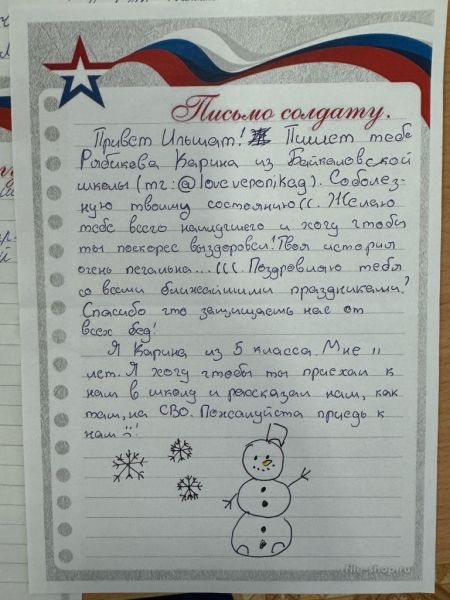 Письмо солдату.
Привет Ильшат! Пишет тебе
Рябикова Карина из Байкаловской
школы (тг: @loveveronikag). Соболез-
ную твоему состоянию((. Желаю
тебе всего наилучшего и хочу чтобы
ты поскорее выздоровел! Твоя история
очень печальна...(((. Поздравляю тебя
со всеми ближайшими праздниками!
Спасибо что защищаешь нас от
всех бед!
Я Карина из 5 класса. Мне 11
лет. Я хочу чтобы ты приехал к
нам в школу и рассказал нам, как
там, на СВО. Пожалуйста приедь к
нам !
file-shop.ru